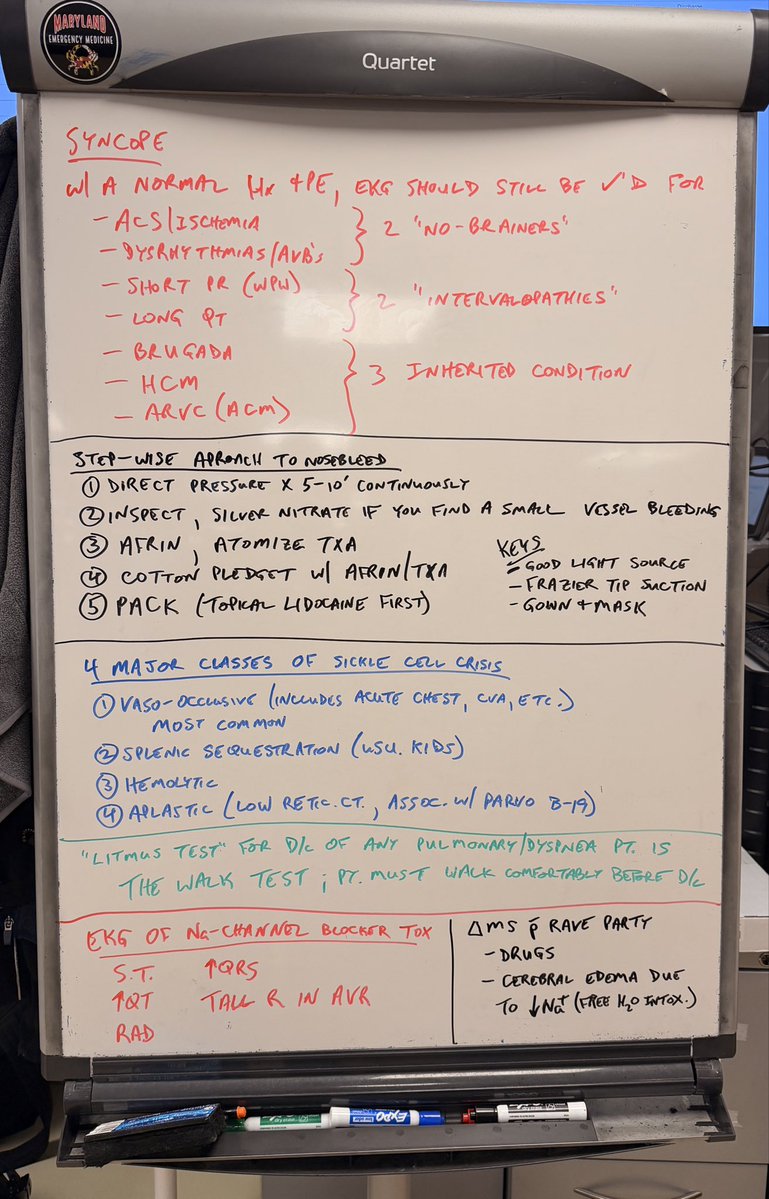 MARYLAND
EMERGENCY MEDICINE
Quartet
SYNCOPE
W/ A NORMAL Hx + PE, EKG SHOULD STILL BE ✓'D FOR
- ACS/ISCHEMIA
- DYSRHYTHMIAS/AVB's
} 2 "NO-BRAINERS"
- SHORT PR (WPW)
- LONG QT
} 2 "INTERVALOPATHIES"
- BRUGADA
- HCM
- ARVC (ACM)
} 3 INHERITED CONDITION
STEP-WISE APROACH TO NOSEBLEED
① DIRECT PRESSURE X 5-10' CONTINUOUSLY
② INSPECT, SILVER NITRATE IF YOU FIND A SMALL VESSEL BLEEDING
③ AFRIN, ATOMIZE TXA
④ COTTON PLEDGET W/ AFRIN/TXA
⑤ PACK (TOPICAL LIDOCAINE FIRST)
KEYS
- GOOD LIGHT SOURCE
- FRAZIER TIP SUCTION
- GOWN + MASK
4 MAJOR CLASSES OF SICKLE CELL CRISIS
① VASO-OCCLUSIVE (INCLUDES ACUTE CHEST, CVA, ETC.)
MOST COMMON
② SPLENIC SEQUESTRATION (USU. KIDS)
③ HEMOLYTIC
④ APLASTIC (LOW RETIC. CT., ASSOC. W/ PARVO B-19)
"LITMUS TEST" FOR D/C OF ANY PULMONARY/DYSPNEA PT. IS
THE WALK TEST; PT. MUST WALK COMFORTABLY BEFORE D/C
EKG OF Na-CHANNEL BLOCKER TOX
S.T. ↑QRS
↑QT TALL R IN AVR
RAD
ΔMS p̄ RAVE PARTY
- DRUGS
- CEREBRAL EDEMA DUE
TO ↓Na⁺ (FREE H₂O INTOX.)
EXPO